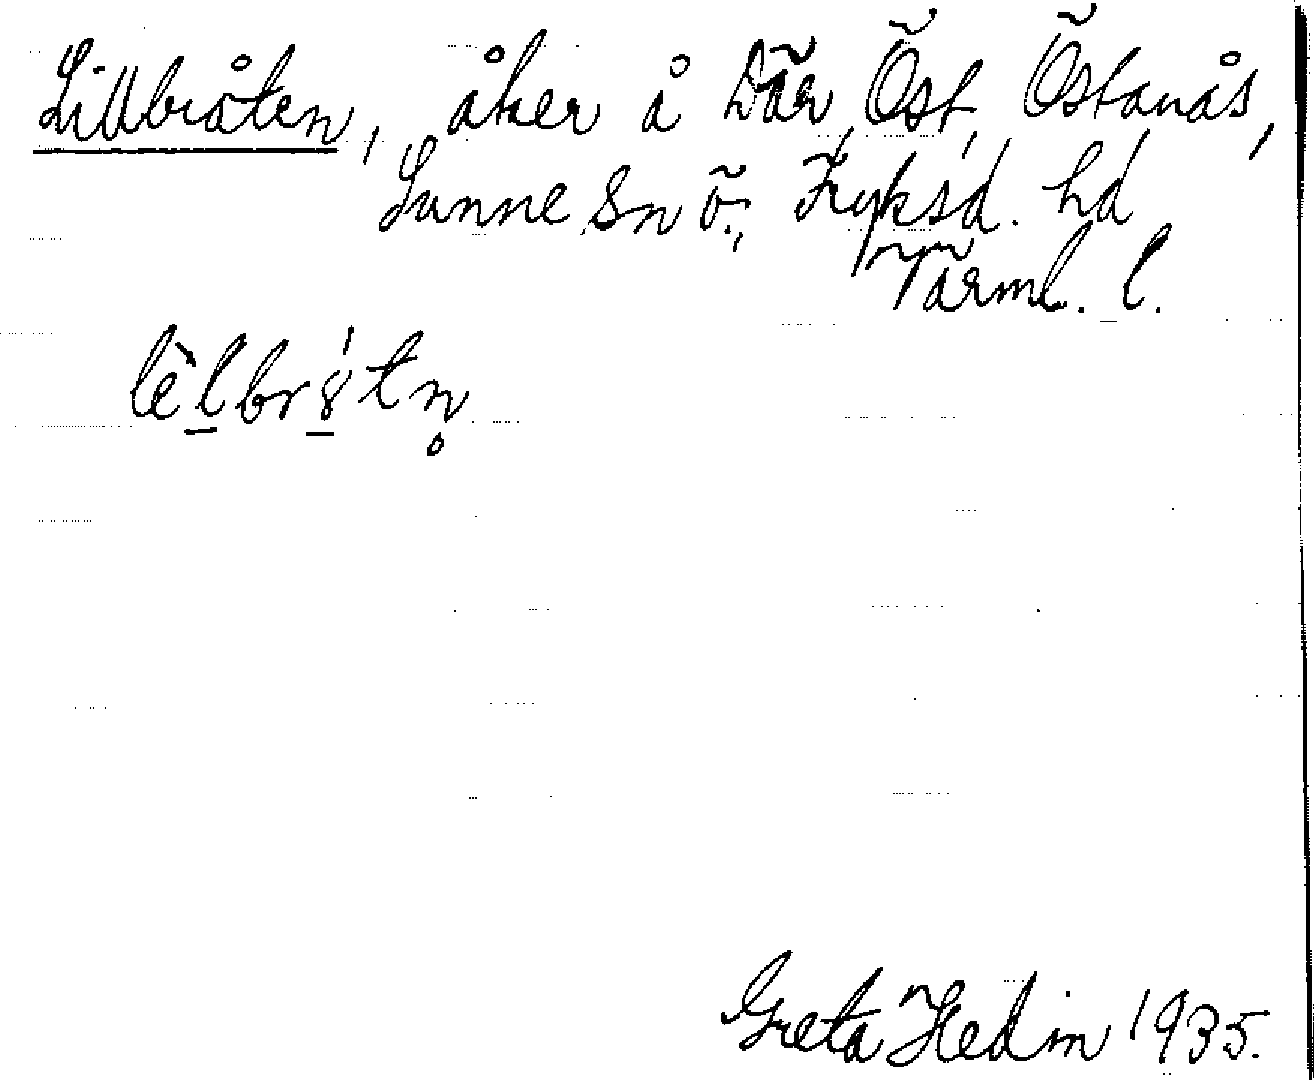 Lillbråten, åker å Där Öst, Östanås,
Sunne sn ö., Fryksd. hd
Värml. l.
lèlbrs̍tn̥
Greta Hedin 1935.